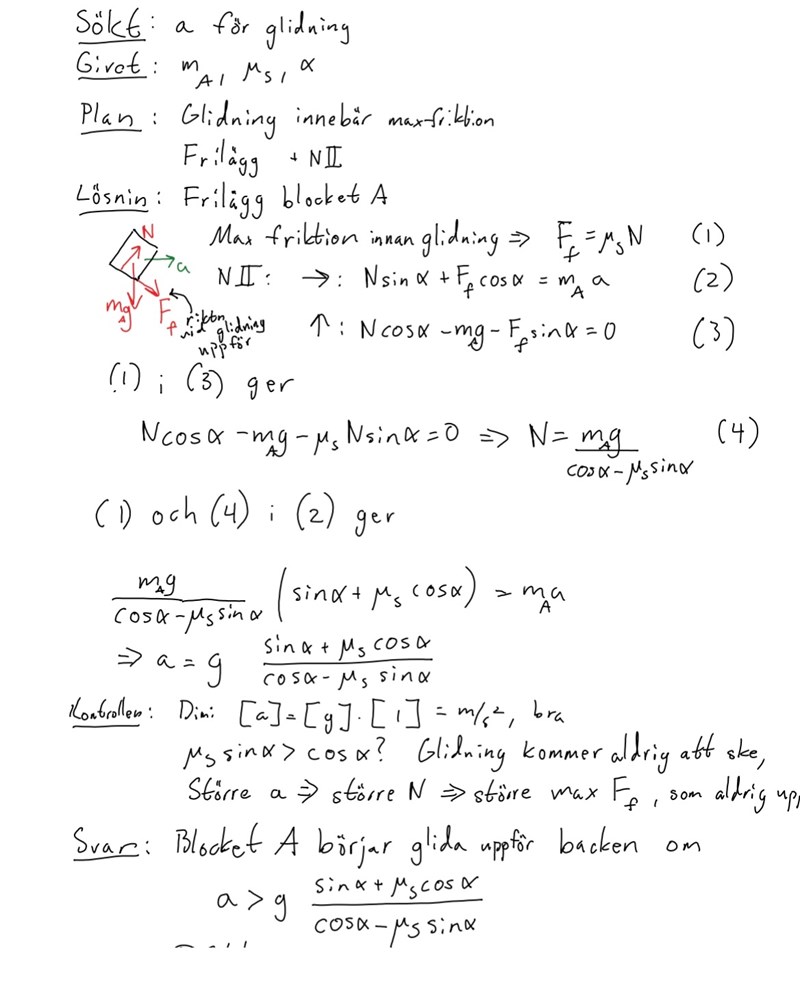 Sökt: a för glidning
Givet: m_A, μ_s, α
Plan: Glidning innebär maxfriktion
Frilägg + NII
Lösnin: Frilägg blocket A
Max friktion innan glidning ⇒ F_f = μ_s N (1)
N
a
m_A g
F_f
vid glidning
uppför
NII: →: N sin α + F_f cos α = m_A a (2)
↑: N cos α - m_A g - F_f sin α = 0 (3)
(1) i (3) ger
N cos α - m_A g - μ_s N sin α = 0 ⇒ N = m_A g / (cos α - μ_s sin α) (4)
(1) och (4) i (2) ger
m_A g / (cos α - μ_s sin α) (sin α + μ_s cos α) = m_A a
⇒ a = g (sin α + μ_s cos α) / (cos α - μ_s sin α)
Kontroller: Dim: [a] = [g]·[1] = m/s², bra
μ_s sin α > cos α? Glidning kommer aldrig att ske,
Större a ⇒ större N ⇒ större max F_f, som aldrig upp
Svar: Blocket A börjar glida uppför backen om
a > g (sin α + μ_s cos α) / (cos α - μ_s sin α)